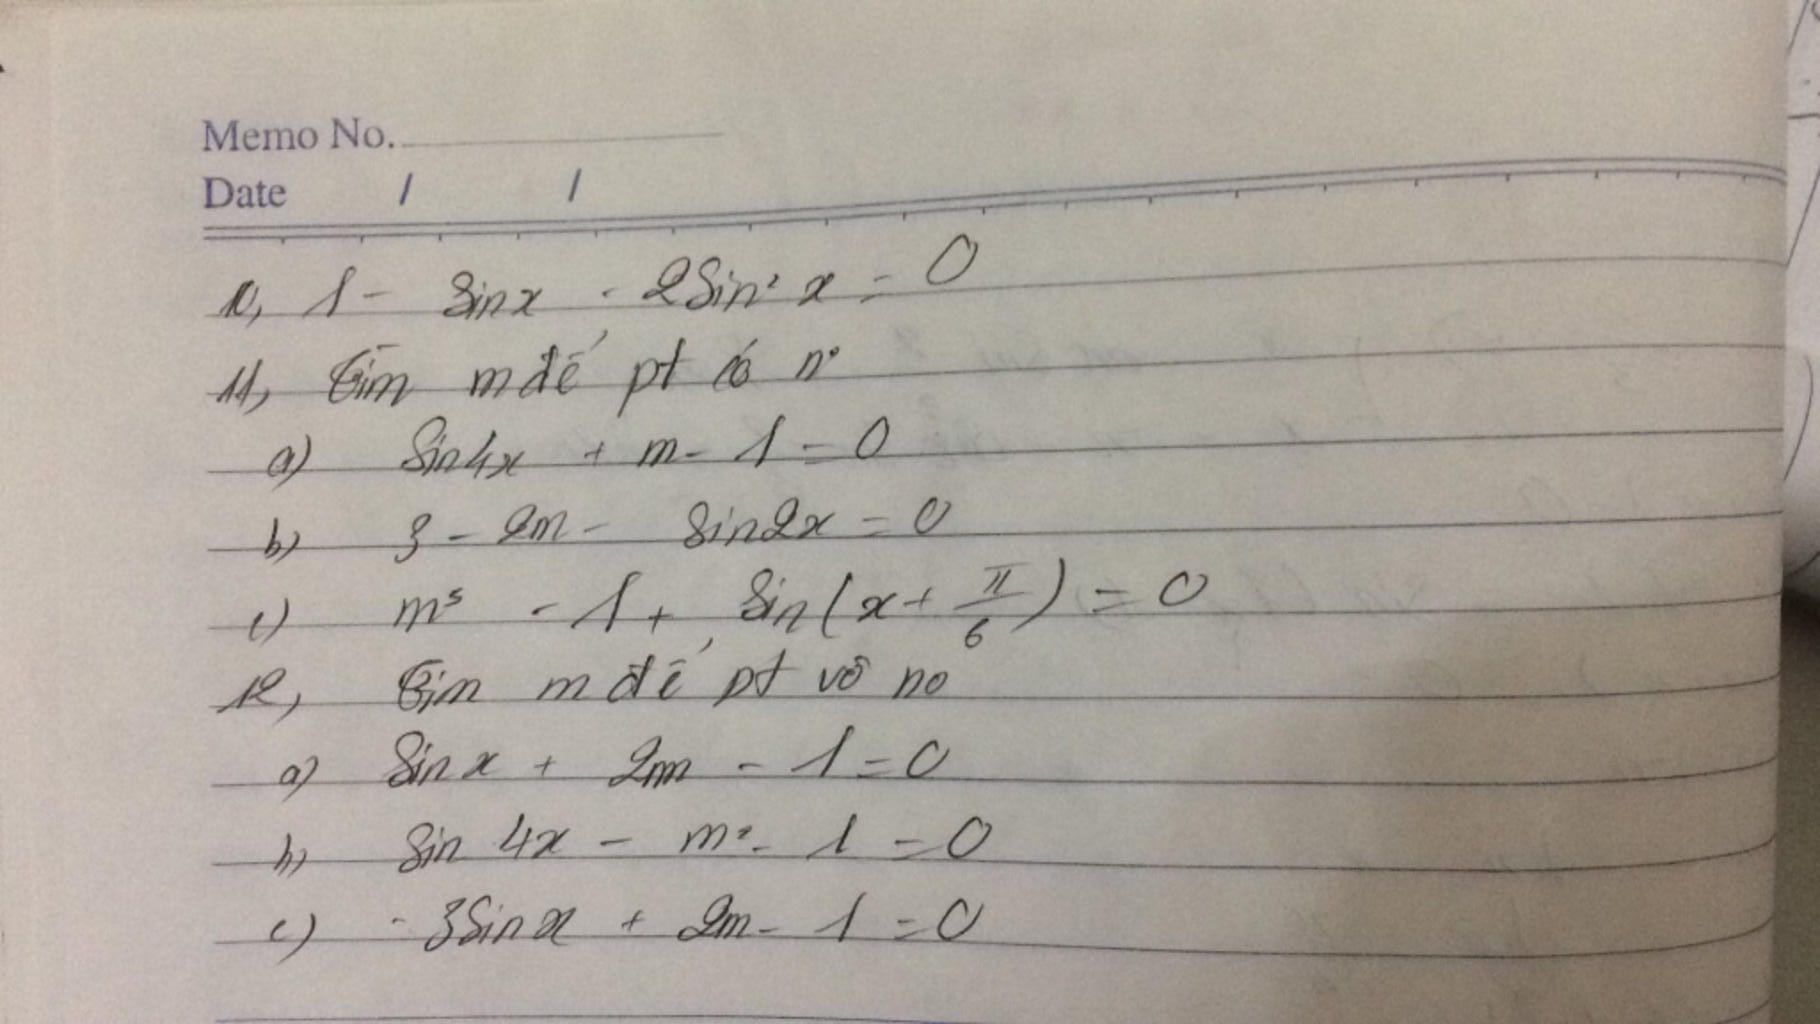 Memo No.
Date / /
10, 1 - sinx - 2sin² x = 0
11, Tìm m để pt có n°
a) Sin4x + m - 1 = 0
b) 3 - 2m - sin2x = 0
c) m³ - 1 + sin(x + π/6) = 0
12, Tìm m để pt vô no
a) Sinx + 2m - 1 = 0
b) sin 4x - m² - 1 = 0
c) - 3sinx + 2m - 1 = 0